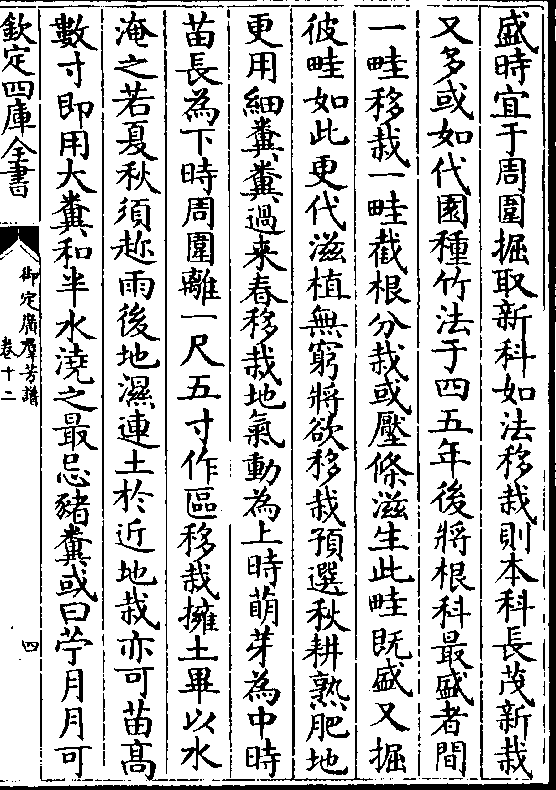 盛時宜于周圍掘取新科如法移栽則本科長茂新栽
又多或如代園種竹法于四五年後將根科最盛者間
一畦移栽一畦截根分栽或壓條滋生此畦既盛又掘
彼畦如此更代滋植無窮將欲移栽預選秋耕熟肥地
更用細糞糞過來春移栽地氣動為上時萌芽為中時
苗長為下時周圍離一尺五寸作區移栽擁土畢以水
淹之若夏秋須趂雨後地濕連土於近地栽亦可苗高
數寸即用大糞和半水澆之最忌豬糞或曰苧月月可
欽定四庫全書
御定廣羣芳譜
卷十二
四